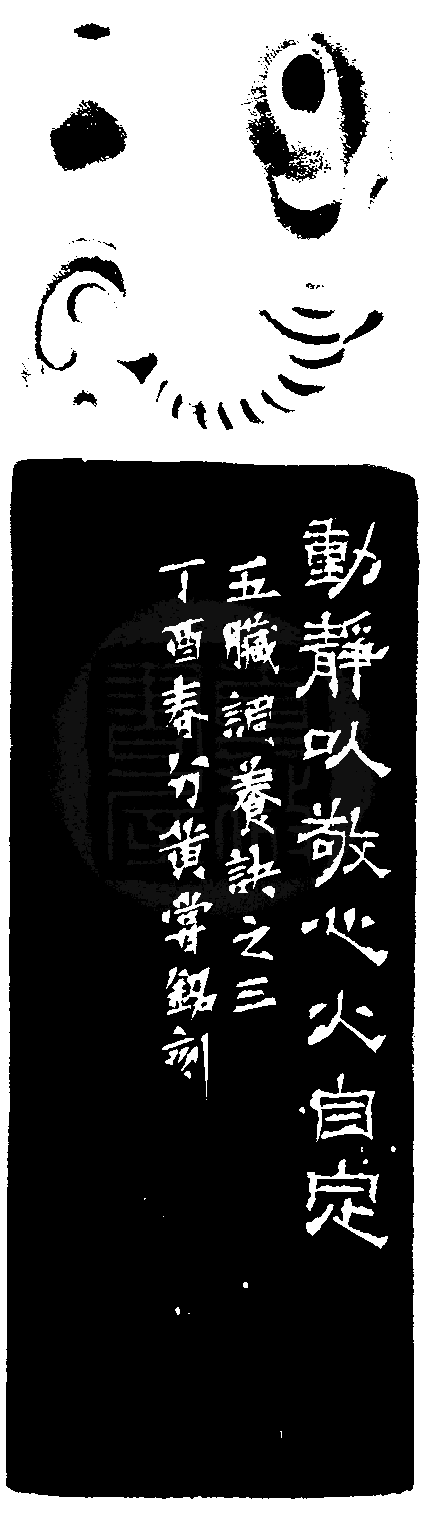 動靜以敬心火自定
五臟調養訣之三
丁酉春分黃嘗銘刻